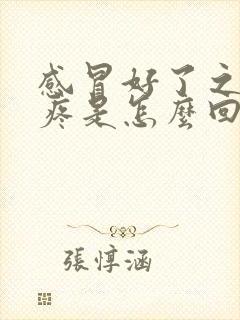 感冒好了之
疼是怎麼回
張惇涵